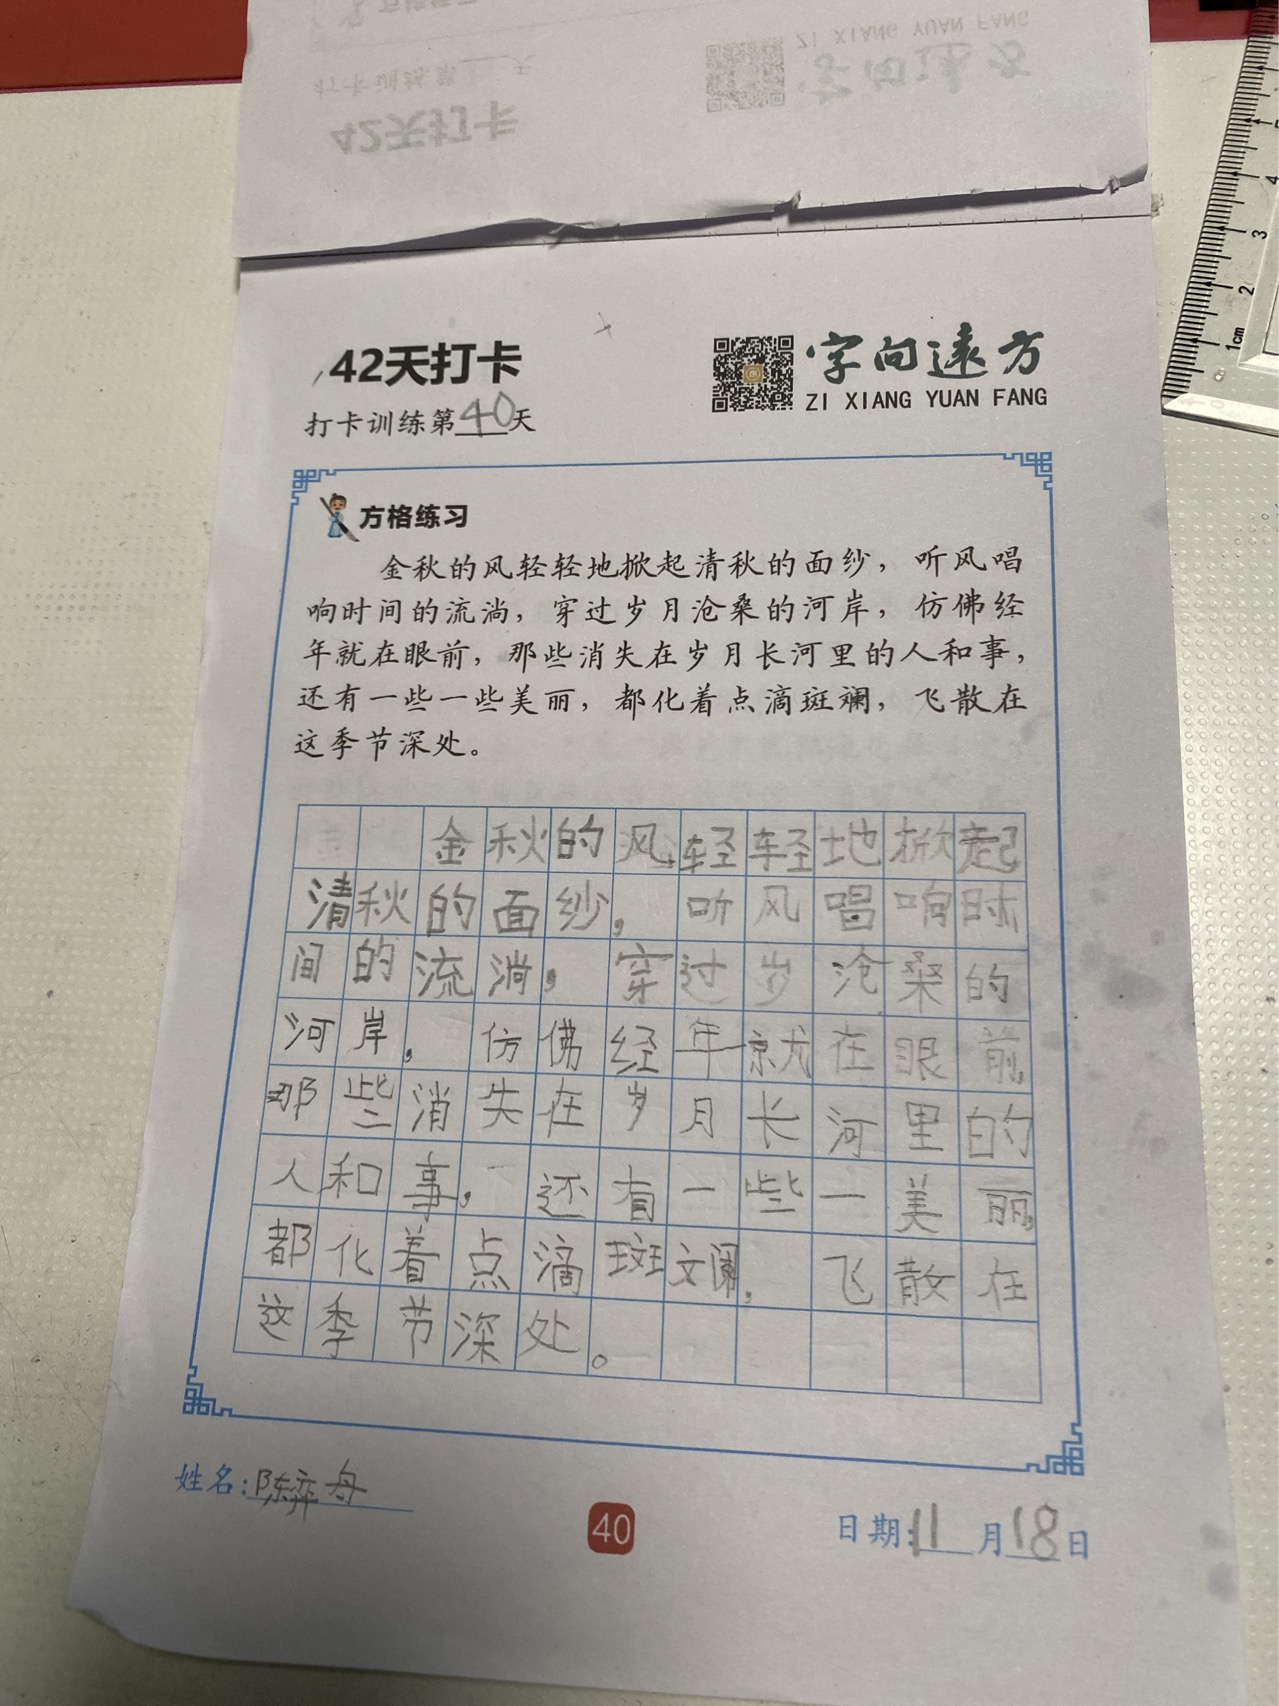 42天打卡
打卡训练第40天
字向远方
ZI XIANG YUAN FANG
方格练习
金秋的风轻轻地掀起清秋的面纱，听风唱
响时间的流淌，穿过岁月沧桑的河岸，仿佛经
年就在眼前，那些消失在岁月长河里的人和事，
还有一些一些美丽，都化着点滴斑斓，飞散在
这季节深处。
金秋的风轻轻地掀起
清秋的面纱，听风唱响时
间的流淌，穿过岁沧桑的
河岸，仿佛经年就在眼前，
那些消失在岁月长河里的
人和事，还有一些一美丽，
都化着点滴斑斓，飞散在
这季节深处。
姓名：陈弈舟
40
日期：11月18日
1cm
2
3
4